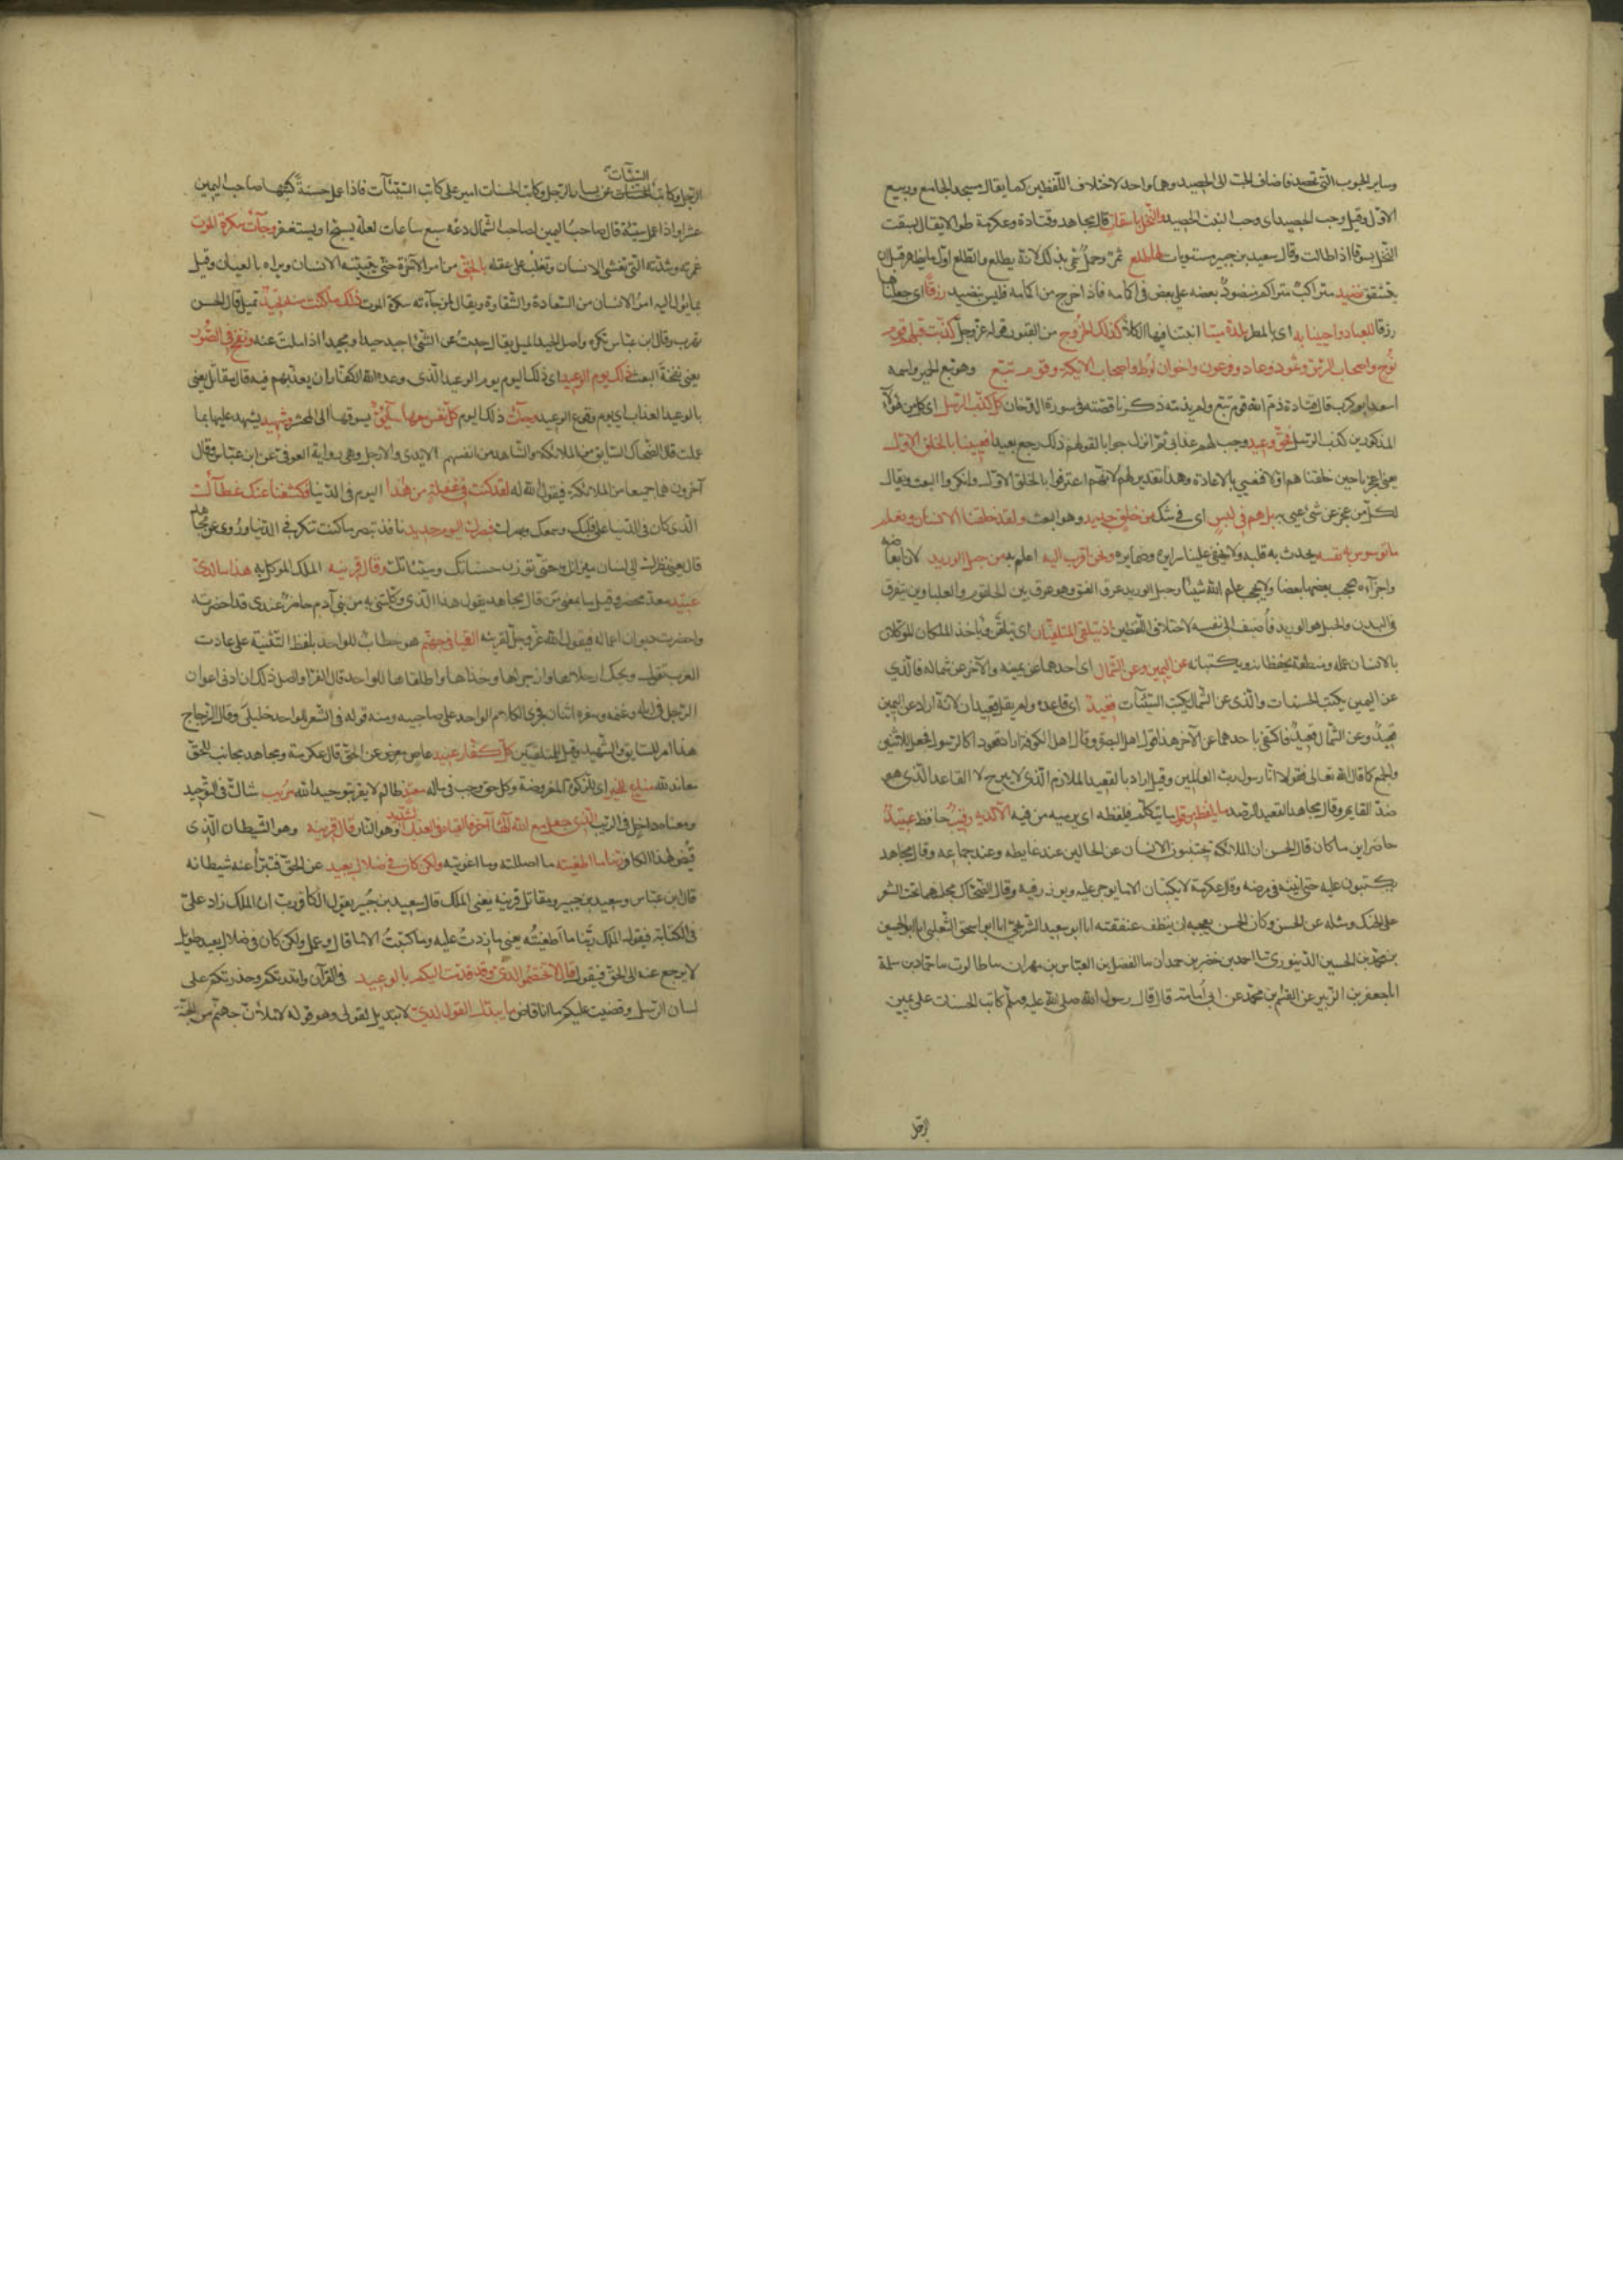 وساير الحبوب التى تحصد فاضاف الحب الى الحصيد وهما واحد لاختلاف اللفظين كما يقال مسجد الجامع وربيع
الاول وقيل وحب الحصيد اى وحب النبت الحصيد والنخل باسقات قال مجاهد وقتادة وعكرمة طوالا يقال بسقت
النخل بسوقا اذا طالت وقال سعيد بن جبير مستويات لها طلع ثمر وحمل سمى بذلك لانه يطلع والطلع اول ما يظهر قبل ان
يتشقق نضيد متراكب متراكم منضود بعضه على بعض فى اكمامه فاذا خرج من اكمامه فليس بنضيد رزقا اى جعلناها
رزقا للعباد واحيينا به اى بالمطر بلدة ميتا انبتنا فيها الكلأ كذلك الخروج من القبور قوله عز وجل كذبت قبلهم قوم
نوح واصحاب الرس وثمود وعاد وفرعون واخوان لوط واصحاب الايكة وقوم تبع وهو تبع الحميرى واسمه
اسعد ابو كرب قال قتادة ذم الله قوم تبع ولم يذمه ذكرنا قصته فى سورة الدخان كل كذب الرسل اى كل من هؤلآء
المذكورين كذب الرسل فحق وعيد وجب لهم عذابى ثم انزل جوابا لقولهم ذلك رجع بعيد افعيينا بالخلق الاول
يعنى اعجزنا حين خلقناهم اولا فنعيى بالاعادة وهذا تقدير لهم لانهم اعترفوا بالخلق الاول وانكروا البعث ويقال
لكل من عجز عن شئ عيى به بل هم فى لبس اى فى شك من خلق جديد وهو البعث ولقد خلقنا الانسان ونعلم
ما توسوس به نفسه يحدث به قلبه ولا يخفى علينا سرايره وضمايره ونحن اقرب اليه اعلم به من حبل الوريد لان ابعاضه
واجزاءه يحجب بعضها بعضا ولا يحجب علم الله شيئا وحبل الوريد عرق العنق وهو عرق بين الحلقوم والعلباوين يتفرق
فى البدن والحبل هو الوريد فأضيف الى نفسه لاختلاف اللفظين اذ يتلقى المتلقيان اى يتلقى ويأخذ الملكان الموكلان
بالانسان عمله ومنطقه يحفظانه ويكتبانه عن اليمين وعن الشمال اى احدهما عن يمينه والآخر عن شماله فالذى
عن اليمين يكتب الحسنات والذى عن الشمال يكتب السيئآت قعيد اى قاعد ولم يقل قعيدان لانه اراد عن اليمين
قعيد وعن الشمال قعيد فاكتفى باحدهما عن الآخر هذا قول اهل البصرة وقال اهل الكوفة اراد قعودا كالرسول فجعل للاثنين
والجمع كما قال الله تعالى فقولا انا رسول رب العالمين وقيل اراد بالقعيد الملازم الذى لا يبرح لا القاعد الذى هو
ضد القايم وقال مجاهد القعيد الرصد ما يلفظ من قول ما يتكلم فيلفظه اى يرميه من فيه الا لديه رقيب حافظ عتيد
حاضر اين ما كان قال الحسن ان الملائكة يجتنبون الانسان عن الحالين عند غايطه وعند جماعه وقال مجاهد
يكتبون عليه حتى انينه فى مرضه وقال عكرمة لا يكتبان الا ما يوجر عليه ويوزر فيه وقال الضحاك مجلسهما تحت الشعر
على الحنك ومثله عن الحسن وكان الحسن يعجبه ان ينظف عنفقته انا ابو سعيد الشريحى انا ابو اسحق الثعلبى انا ابو الحسين
بن محمد بن الحسين الدينورى ثنا احمد بن جعفر بن حمدان ثنا الفضل بن العباس بن مهران ثنا طالوت ثنا حماد بن سلمة
انا جعفر بن الزبير عن القسم بن محمد عن ابى أمامة قال قال رسول الله صلى الله عليه وسلم كاتب الحسنات على يمين
الرجل
السيئآت
الرجل وكاتب الحسنات عن يسار الرجل وكاتب الحسنات امير على كاتب السيئآت فاذا عمل حسنة كتبها صاحب اليمين
عشرا واذا عمل سيئة قال صاحب اليمين لصاحب الشمال دعه سبع ساعات لعله يسبح او يستغفر وجآءت سكرة الموت
غمرته وشدته التى تغشى الانسان وتغلب على عقله بالحق من امر الآخرة حتى يتبينه الانسان ويراه بالعيان وقيل
بما يؤل اليه امر الانسان من السعادة والشقاوة ويقال لمن جاءته سكرة الموت ذلك ما كنت منه تحيد تميل قال الحسن
تهرب وقال ابن عباس تكره واصل الحيد الميل يقال حدت عن الشئ احيد حيدا ومحيدا اذا ملت عنه ونفخ فى الصور
يعنى نفخة البعث ذلك يوم الوعيد اى ذلك اليوم يوم الوعيد الذى وعده الله الكفار ان يعذبهم فيه قال مقاتل يعنى
بالوعيد العذاب اى يوم وقوع الوعيد وجآءت ذلك اليوم كل نفس معها سآئق يسوقها الى المحشر وشهيد يشهد عليها بما
عملت قال الضحاك السايق من الملائكة والشاهد من انفسهم الايدى والارجل وهى رواية العوفى عن ابن عباس وقال
آخرون هما جميعا من الملائكة فيقول الله له لقد كنت فى غفلة من هذا اليوم فى الدنيا فكشفنا عنك غطآءك
الذى كان فى الدنيا على قلبك وسمعك وبصرك فبصرك اليوم حديد نافذ تبصر ما كنت تنكر فى الدنيا وروى عن مجاهد
قال يعنى نظرك الى لسان ميزانك حتى توزن حسناتك وسيئاتك وقال قرينه الملك الموكل به هذا ما لدى
عتيد معد محضر وقيل ما بمعنى من قال مجاهد يقول هذا الذى وكلتنى به من بنى آدم حاضر عندى قد احضرته
واحضرت ديوان اعماله فيقول الله عز وجل لقرينه القيا فى جهنم هو خطاب للواحد بلفظ التثنية على عادت
العرب تقول ويحك ارحلاها وازجراها وخذاها واطلقاها للواحد قال الفرا واصل ذلك ان ادنى اعوان
الرجل فى ابله وغنمه وسفره اثنان فجرى الكلام الواحد على صاحبيه ومنه قوله فى الشعر للواحد خليلى وقال الزجاج
هذا امر للسايق والشهيد وقيل للمتلقيين كل كفار عنيد عاص معرض عن الحق قال عكرمة ومجاهد مجانب للحق
معاند لله مناع للخير اى للزكوة المفروضة وكل حق وجب فى ماله معتد ظالم لا يقر بتوحيد الله مريب شاك فى التوحيد
ومعناه داخل فى الريب الذى جعل مع الله الها آخر فالقياه فى العذاب الشديد وهو النار قال قرينه وهو الشيطان الذى
قيض لهذا الكافر ربنا ما اطغيته ما اضللته وما اغويته ولكن كان فى ضلال بعيد عن الحق فتبرأ عنه شيطانه
قال ابن عباس وسعيد بن جبير ومقاتل قرينه يعنى الملك قال سعيد بن جبير يقول الكافر رب ان الملك زاد على
فى الكتابة فيقول الملك ربنا ما اطغيته يعنى ما زدت عليه وما كتبت الا ما قال وعمل ولكن كان فى ضلال بعيد طويل
لا يرجع عنه الى الحق فيقول قال لا تختصموا لدى وقد قدمت اليكم بالوعيد فى القرآن وانذرتكم وحذرتكم على
لسان الرسل وقضيت عليكم ما انا قاض ما يبدل القول لدى لا تبديل لقولى وهو قوله لاملأن جهنم من الجنة